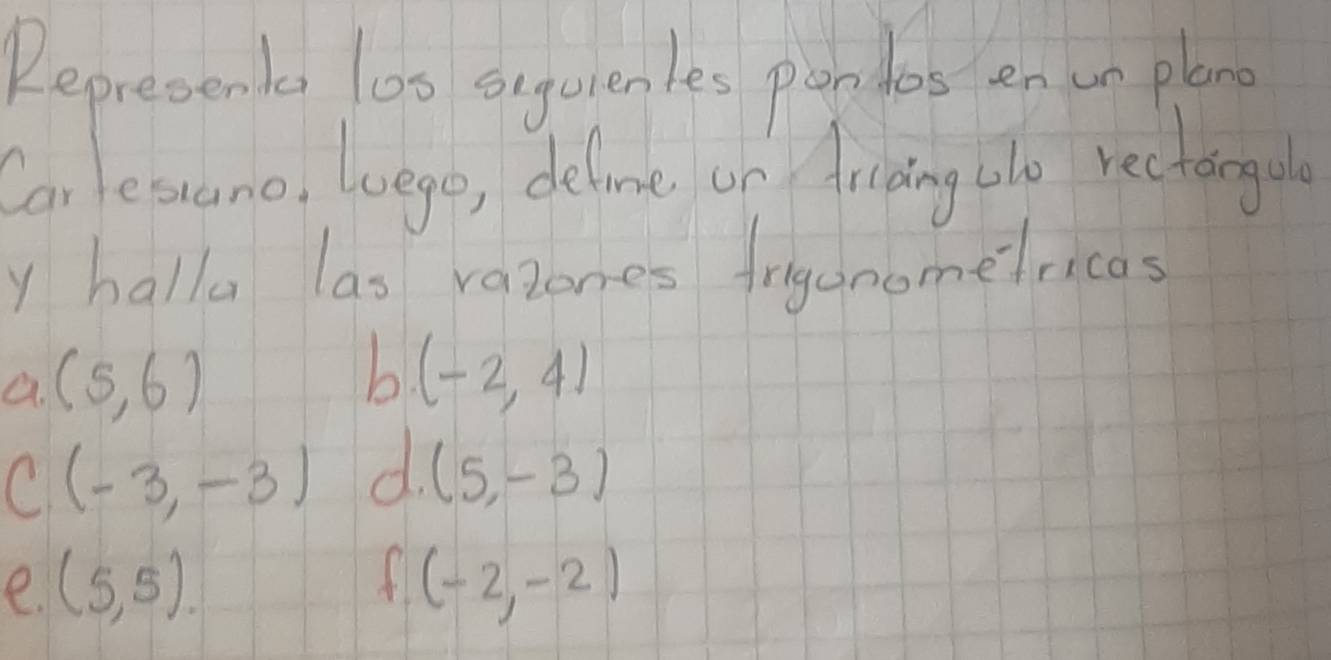 Representa los siguientes puntos en un plano
Cartesiano, luego, define un triángulo rectángulo
y halla las razones trigonométricas
a. (5,6) b. (-2, 4)
C (-3, -3) d. (5, -3)
e. (5,5). f. (-2, -2)